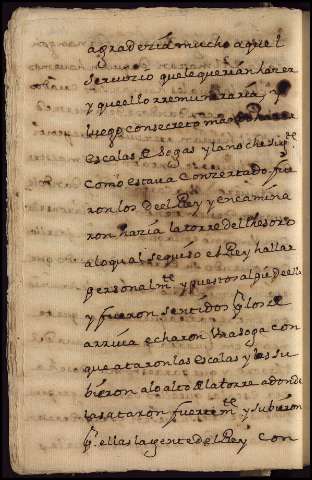 agradezia mucho aquel
servizio que le querian hazer
y que ello rremuneraria, y
luego con secreto mando
escalas e sogas y la noche sigte
como estava conzertado fue
ron los de el Rey y encamina
ron hazia la torre del thesoro
a lo qual se quiso el Rey hallar
personalmte y puestos al pie de ella
y fueron sentidos por los de
arriva echaron una soga con
que ataron las escalas y las su
bieron a lo alto de la torre a donde
las ataron fuertemte y subieron
por ellas la gente del Rey con